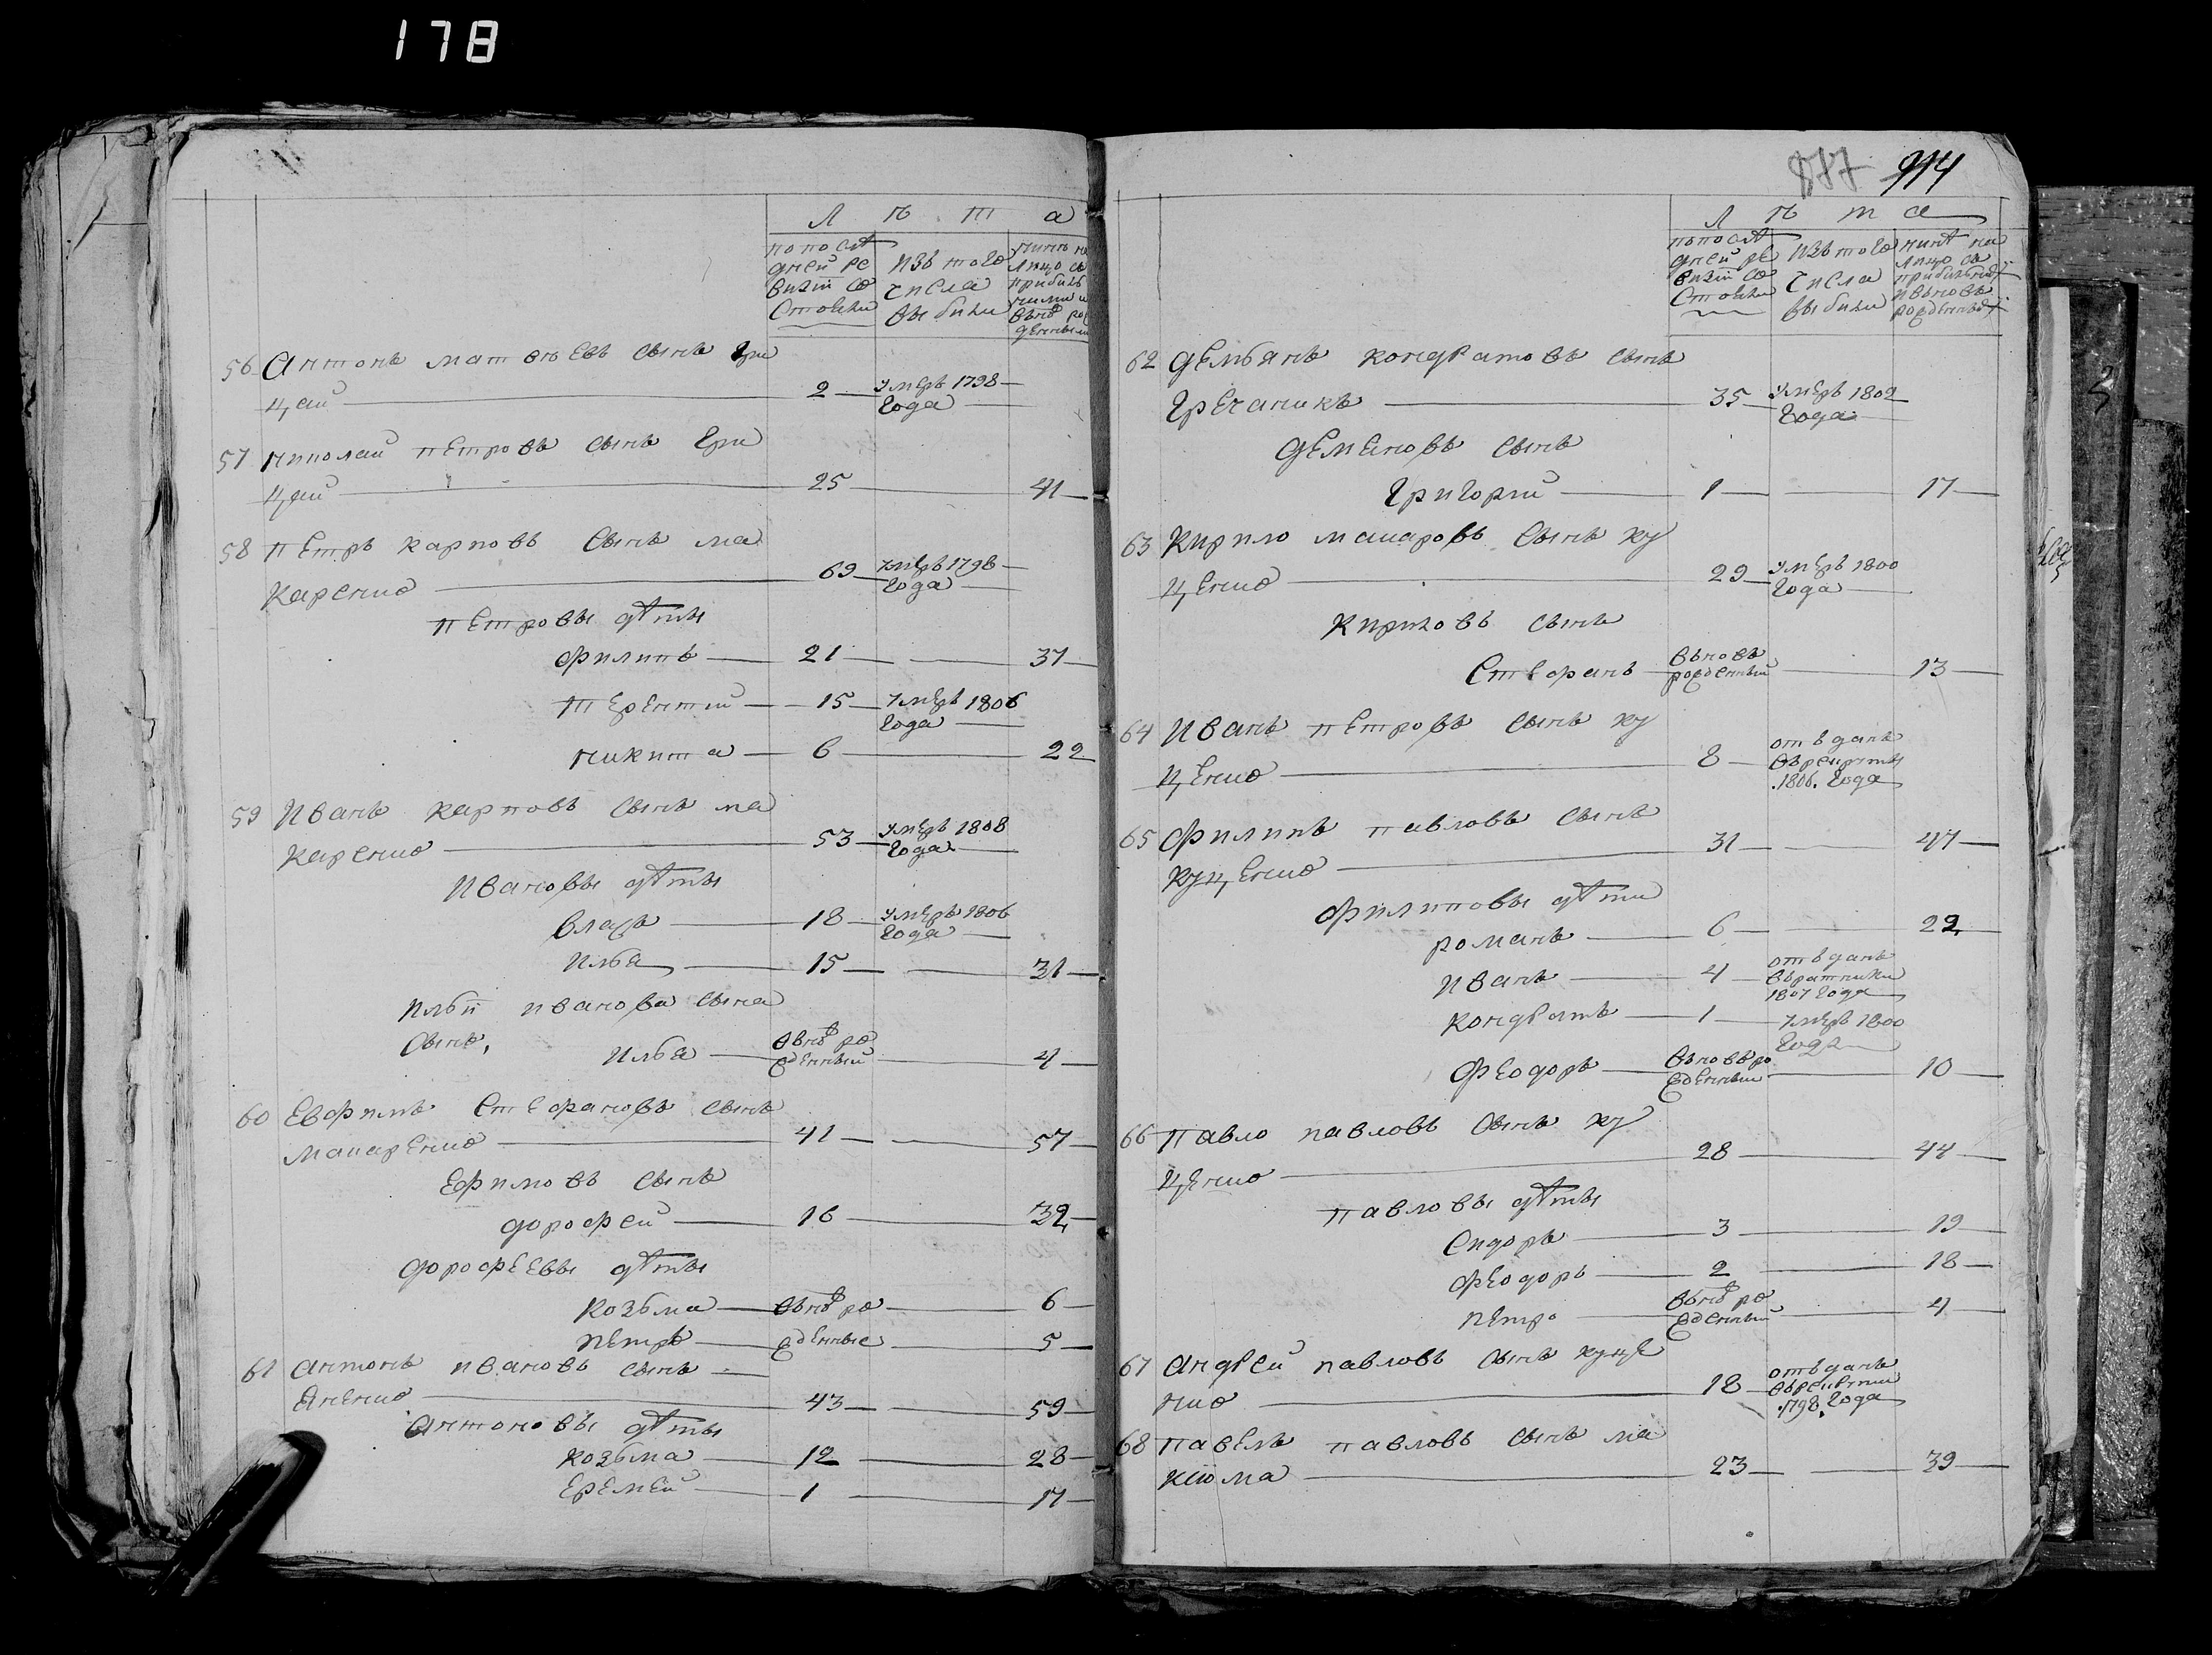 178
Л ѣ т а
попослѣ
дней ре
визіи со
стояли
изъ того
числа
выбыли
нинѣ на
лицо съ
прибыв
шими и
вѣнѡ ро
денными
56 Антонъ матвѣевъ сынъ гри
цай 2 умеръ 1798
года
57 николай петровъ сынъ гри
цай 25 41
58 петръ карповъ сынъ ма
каренко 69 умеръ 1798
года
петровы дѣты
филипъ 21 37
терентий 15 умеръ 1806
года
никита 6 22
59 Иванъ карповъ сынъ ма
каренко 53 умеръ 1808
года
Ивановы дѣты
власъ 18 умеръ 1806
года
илья 15 31
ильи иванова сына
сынъ, илья вънѡ ро
жденный 4
60 Евфимъ стефановъ сынъ
макаренко 41 57
Ефимовъ сынъ
дорофей 16 32
дорофеевы дѣты
козьма вънѡ ро 6
петръ жденные 5
61 антонъ ивановъ сынъ
яненко 43 59
антоновы дѣты
козьма 12 28
еремей 1 17
877 914
Л ѣ т а
попослѣ
дней ре
визіи со
стояли
изъ того
числа
выбыли
нинѣ на
лицо съ
прибылыми
и вьновь
рожденными
62 демьянъ кондратовъ сынъ
гречаникъ 35 умеръ 1802
года
демяновъ сынъ
григорий 1 17
63 кирило макаровъ сынъ ку
ценко 29 умеръ 1800
года
кириловъ сынъ
стефанъ вьновь
рожденный 13
64 Иванъ петровъ сынъ ку
ценко 8 отъданъ
въ рекруты
.1806. года
65 филипъ павловъ сынъ
куценко 31 47
филиповы дѣти
романъ 6 22
иванъ 4 отъданъ
въ ратники
1807 года
кондратъ 1 умеръ 1800
года
феодоръ вьновь ро
жденный 10
66 павло павловъ сынъ ку
ценко 28 44
павловы дѣты
сидоръ 3 19
феодоръ 2 18
петро вънѡ ро
жденный 4
67 андрей павловъ сынъ куце
нко 18 отъданъ
въ рекрути
.1798. года
68 павелъ павловъ сынъ ма
кіома 23 39